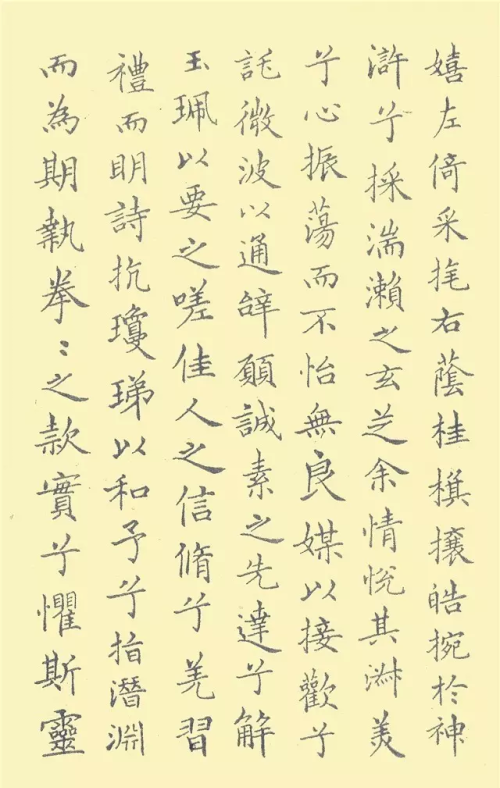 嬉左倚采旄右蔭桂旗攘皓捥於神
滸兮採湍瀨之玄芝余情悅其淑美
兮心振蕩而不怡無良媒以接歡兮
託微波以通辭願誠素之先達兮解
玉珮以要之嗟佳人之信脩兮羌習
禮而明詩抗瓊珶以和予兮指潛淵
而為期執拳〻之款實兮懼斯靈